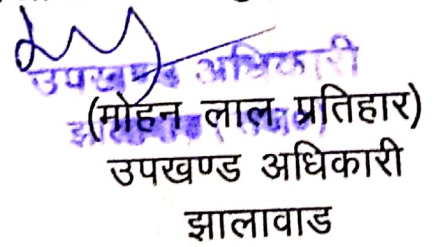 उपखण्ड अधिकारी
(मोहन लाल प्रतिहार)
उपखण्ड अधिकारी
झालावाड